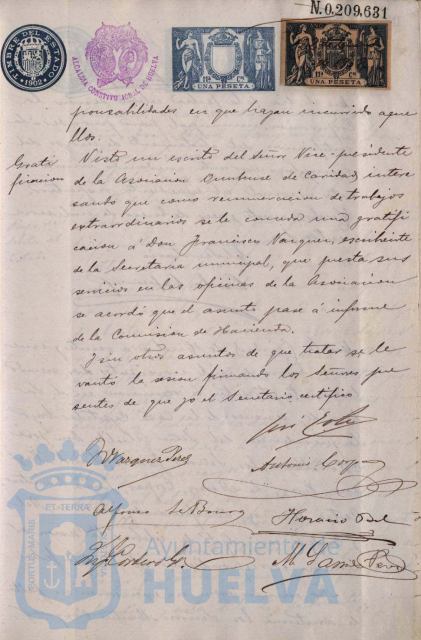 N.0,209,631
TIMBRE DEL ESTADO
1902
ALCALDIA CONSTITUCIONAL DE HUELVA
11ª Cª
UNA PESETA
11ª Cª
UNA PESETA
ponsabilidades en que hayan incurrido aque
llos.
Grati
ficacion
Visto un escrito del Señor Vice-presidente
de la Asociacion Onubense de Caridad, intere
sando que como remuneracion de trabajos
extraordinarios se le conceda una gratifi
cacion á Don Francisco Vazquez, escribiente
de la Secretaria municipal, que presta sus
servicios en las oficinas de la Asociacion
se acordó que el asunto pase á informe
de la Comision de Hacienda.
Y sin otros asuntos de que tratar se le
vantó la sesion firmando los Señores pre
sentes de que yo el Secretario certifico
José
Vazquez Perez
Antonio
Alfonso
Horacio Bel
M. Garcia Perez
ET TERRÆ
PORTUS MARIS
Ayuntamiento de
HUELVA